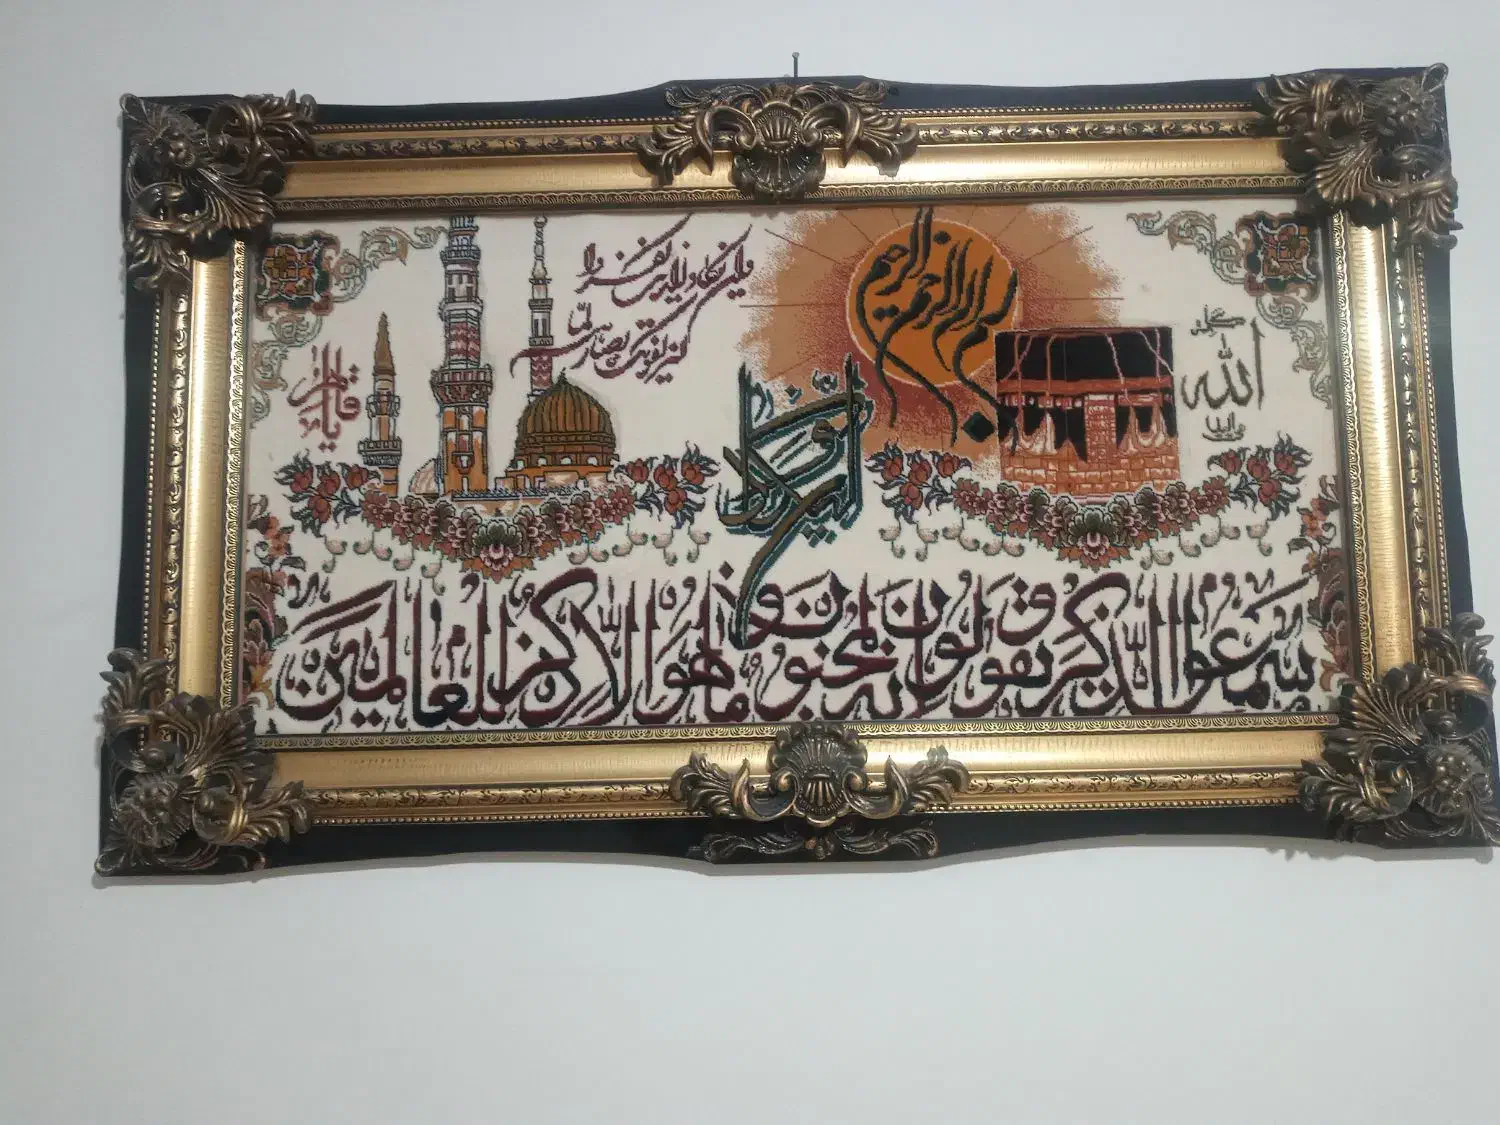 بسم الله الرحمن الرحیم
وان یکاد الذین کفروا
لیزلقونک بابصارهم لما
سمعوا الذکر و یقولون انه لمجنون و
ما هو الا ذکر للعالمین
الله